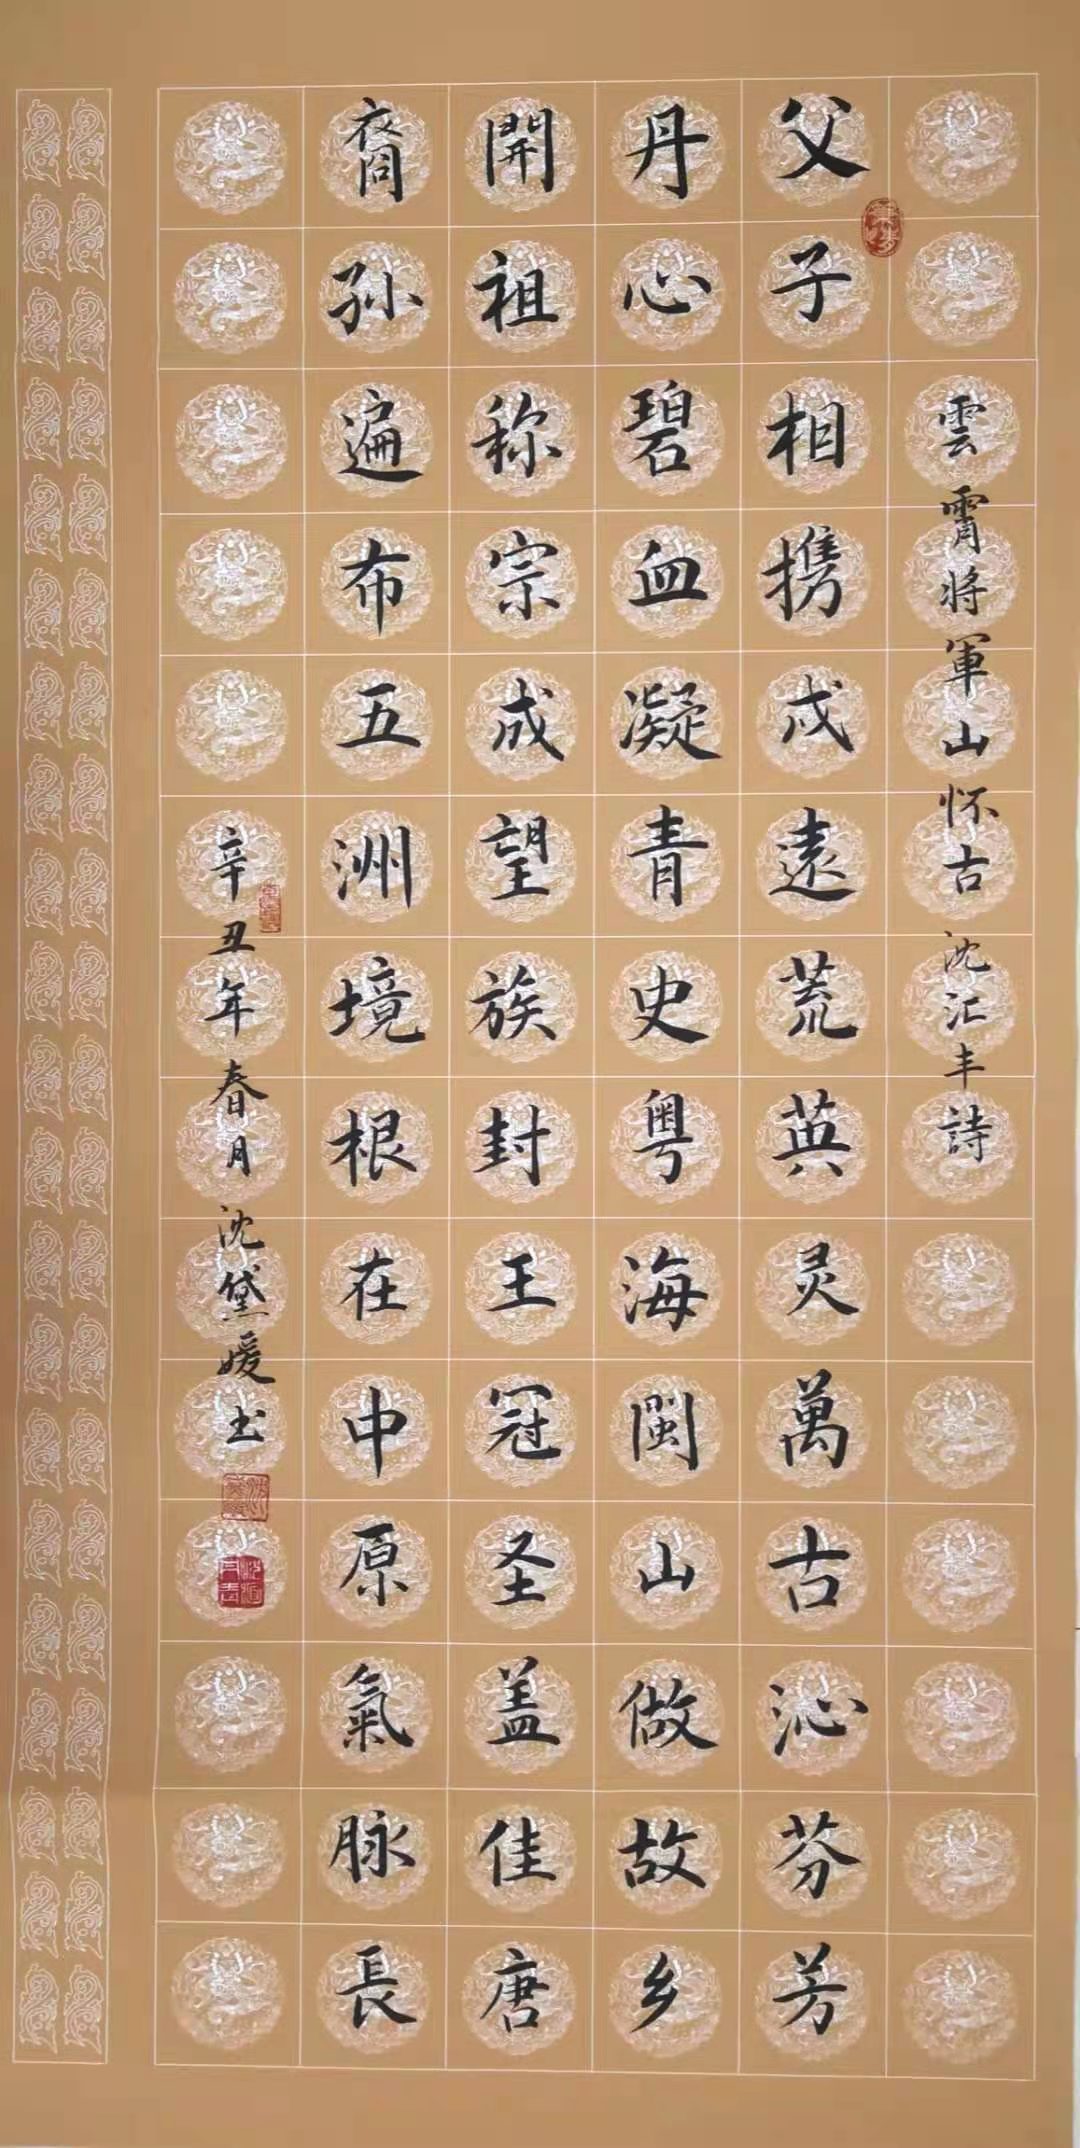 雲霄将軍山怀古 沈汇丰詩
父子相携戍遠荒英灵萬古沁芬芳
丹心碧血凝青史粤海闽山做故乡
開祖称宗成望族封王冠圣盖佳唐
裔孙遍布五洲境根在中原氣脉長
辛丑年春月 沈黛媛书